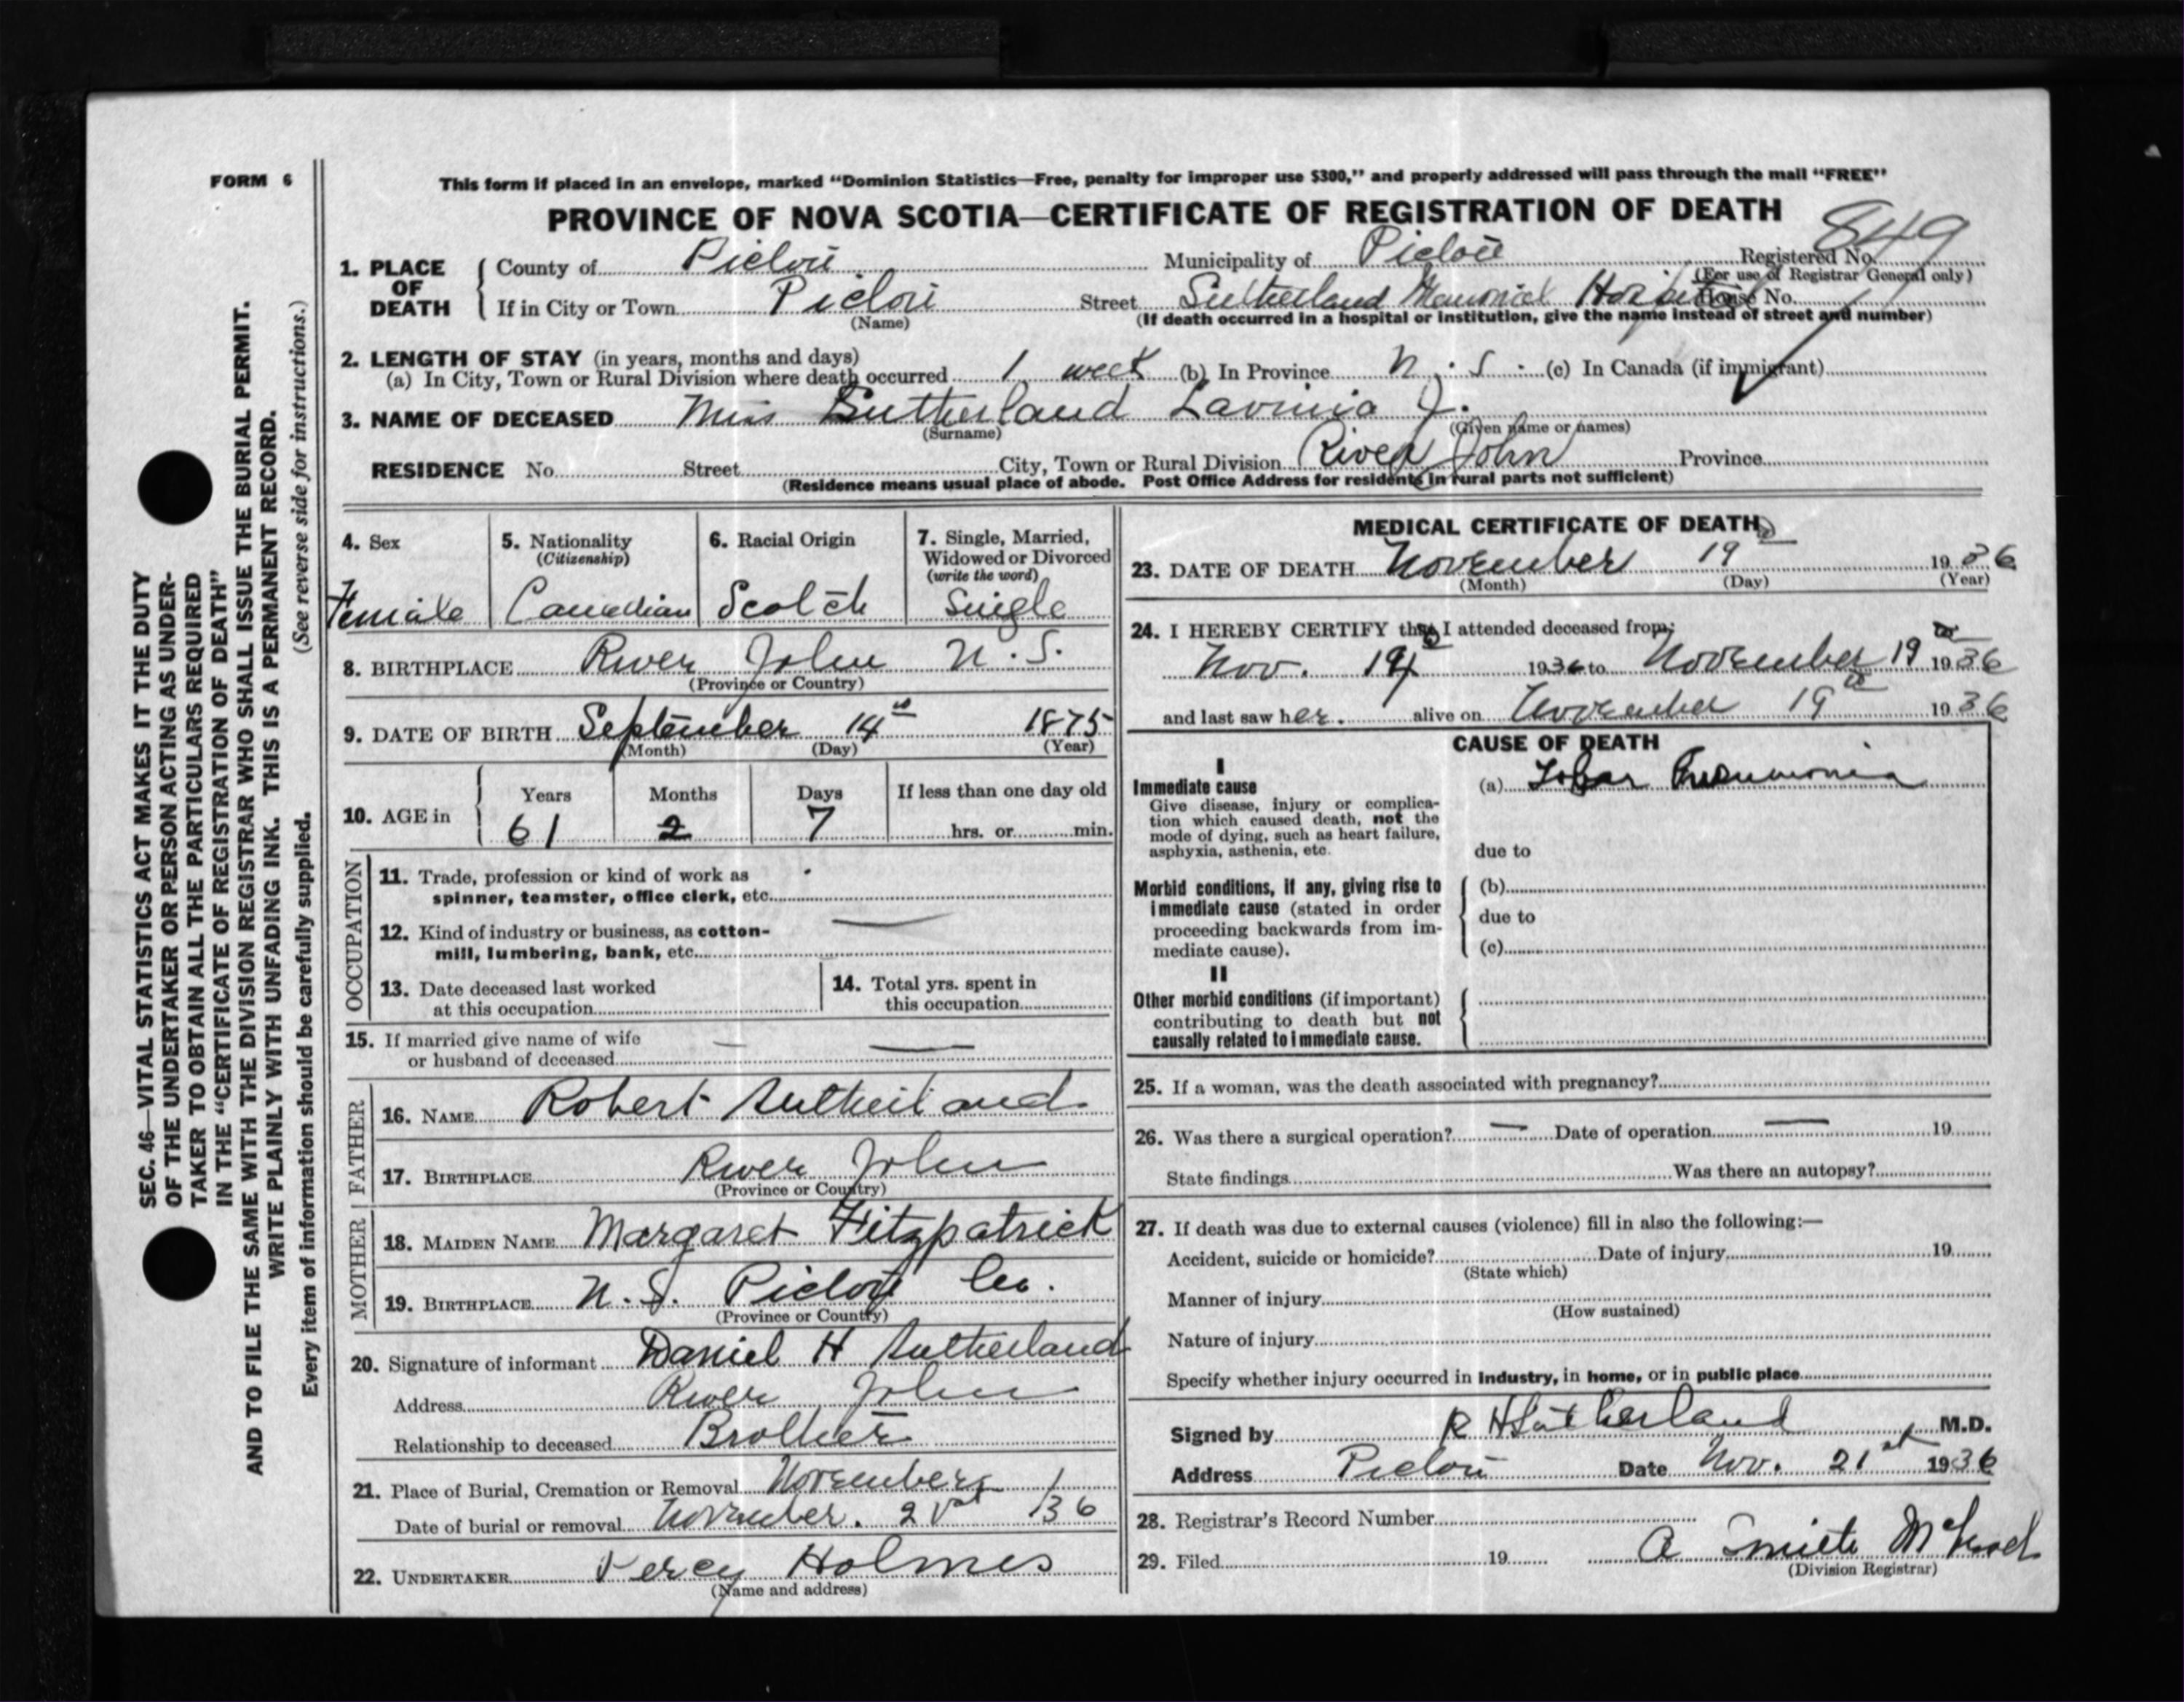 FORM 6
This form if placed in an envelope, marked “Dominion Statistics—Free, penalty for improper use $300,” and properly addressed will pass through the mail “FREE”
PROVINCE OF NOVA SCOTIA—CERTIFICATE OF REGISTRATION OF DEATH
849
1. PLACE OF DEATH County of Pictou Municipality of Pictou Registered No.
(For use of Registrar General only)
If in City or Town Pictou Street Sutherland Memorial Hospital House No.
(Name) (If death occurred in a hospital or institution, give the name instead of street and number)
2. LENGTH OF STAY (in years, months and days)
(a) In City, Town or Rural Division where death occurred 1 week (b) In Province N.S. (c) In Canada (if immigrant)
3. NAME OF DECEASED Miss Sutherland Lavinia J.
(Surname) (Given name or names)
RESIDENCE No. Street City, Town or Rural Division River John Province
(Residence means usual place of abode. Post Office Address for residents in rural parts not sufficient)
4. Sex 5. Nationality 6. Racial Origin 7. Single, Married,
(Citizenship) Widowed or Divorced
(write the word)
Female Canadian Scotch Single
8. BIRTHPLACE River John N.S.
(Province or Country)
9. DATE OF BIRTH September 14th 1875
(Month) (Day) (Year)
10. AGE in Years Months Days If less than one day old
61 2 7 hrs. or min.
OCCUPATION
11. Trade, profession or kind of work as
spinner, teamster, office clerk, etc.
12. Kind of industry or business, as cotton-
mill, lumbering, bank, etc. —
13. Date deceased last worked
at this occupation
14. Total yrs. spent in
this occupation
15. If married give name of wife
or husband of deceased — —
FATHER
16. NAME Robert Sutherland
17. BIRTHPLACE River John
(Province or Country)
MOTHER
18. MAIDEN NAME Margaret Fitzpatrick
19. BIRTHPLACE N.S. Pictou Co.
(Province or Country)
20. Signature of informant Daniel H Sutherland
Address River John
Relationship to deceased Brother
21. Place of Burial, Cremation or Removal November
Date of burial or removal November. 21st /36
22. UNDERTAKER Percy Holmes
(Name and address)
MEDICAL CERTIFICATE OF DEATH
23. DATE OF DEATH November 19th 1936
(Month) (Day) (Year)
24. I HEREBY CERTIFY that I attended deceased from:
Nov. 14th 1936 to November 19th 1936
and last saw her alive on November 19th 1936
CAUSE OF DEATH
I
Immediate cause
Give disease, injury or complica-
tion which caused death, not the
mode of dying, such as heart failure,
asphyxia, asthenia, etc.
(a) Lobar Pneumonia
due to
Morbid conditions, if any, giving rise to
immediate cause (stated in order
proceeding backwards from im-
mediate cause).
(b)
due to
(c)
II
Other morbid conditions (if important)
contributing to death but not
causally related to immediate cause.
25. If a woman, was the death associated with pregnancy?
26. Was there a surgical operation? — Date of operation — 19
State findings Was there an autopsy?
27. If death was due to external causes (violence) fill in also the following:—
Accident, suicide or homicide? Date of injury 19
(State which)
Manner of injury
(How sustained)
Nature of injury
Specify whether injury occurred in industry, in home, or in public place
Signed by R H Sutherland M.D.
Address Pictou Date Nov. 21st 1936
28. Registrar's Record Number
29. Filed 19 A McLeod
(Division Registrar)
SEC. 46—VITAL STATISTICS ACT MAKES IT THE DUTY
OF THE UNDERTAKER OR PERSON ACTING AS UNDER-
TAKER TO OBTAIN ALL THE PARTICULARS REQUIRED
IN THE “CERTIFICATE OF REGISTRATION OF DEATH”
AND TO FILE THE SAME WITH THE DIVISION REGISTRAR WHO SHALL ISSUE THE BURIAL PERMIT.
WRITE PLAINLY WITH UNFADING INK. THIS IS A PERMANENT RECORD.
Every item of information should be carefully supplied. (See reverse side for instructions.)